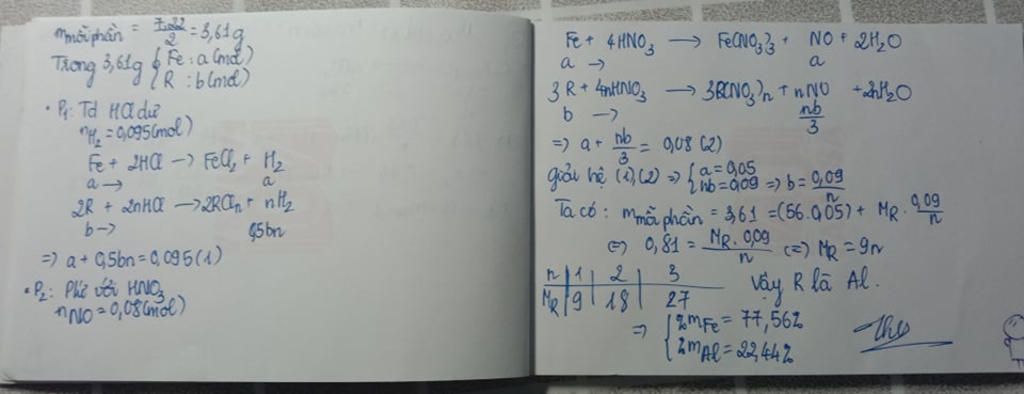 m mỗi phần = 7,22/2 = 3,61g
Trong 3,61g { Fe : a (mol)
R : b (mol)
• P1: Td HCl dư
nH2 = 0,095 (mol)
Fe + 2HCl → FeCl2 + H2
a → a
2R + 2nHCl → 2RCln + nH2
b → 0,5bn
=> a + 0,5bn = 0,095 (1)
• P2: Phứ với HNO3
nNO = 0,08 (mol)
Fe + 4HNO3 → Fe(NO3)3 + NO + 2H2O
a → a
3R + 4nHNO3 → 3R(NO3)n + nNO + 2nH2O
b → nb/3
=> a + nb/3 = 0,08 (2)
giải hệ (1),(2) => { a = 0,05
nb = 0,09 => b = 0,09/n
Ta có : m mỗi phần = 3,61 = (56.0,05) + MR . 0,09/n
(=) 0,81 = MR . 0,09/n (=) MR = 9n
n | 1 | 2 | 3
MR | 9 | 18 | 27
Vậy R là Al.
=> { %mFe = 77,56%
%mAl = 22,44%